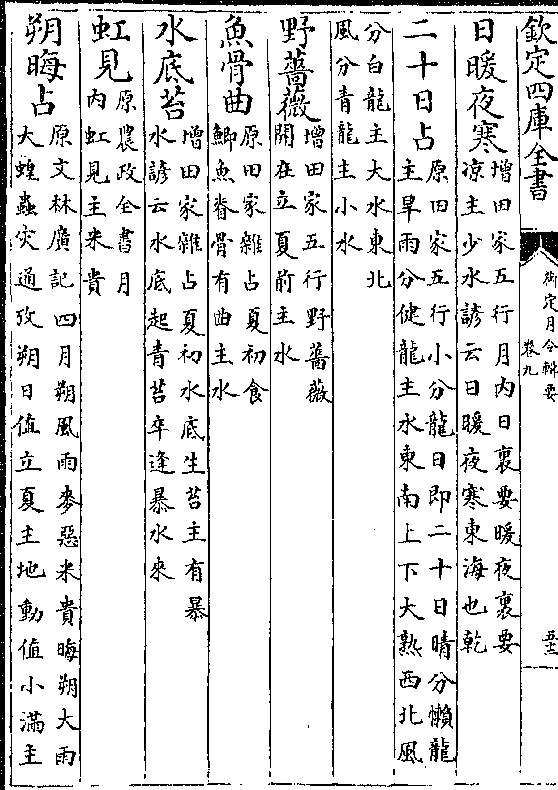 欽定四庫全書
御定月令輯要
卷九
五十三
日暖夜寒
增田家五行月内日裏要暖夜裏要
凉主少水諺云日暖夜寒東海也乾
二十日占
原田家五行小分龍日即二十日晴分懶龍
主旱雨分健龍主水東南上下大熟西北風
分白龍主大水東北
風分青龍主小水
野薔薇
增田家五行野薔薇
開在立夏前主水
魚骨曲
原田家雜占夏初食
鯽魚脊骨有曲主水
水底苔
增田家雜占夏初水底生苔主有暴
水諺云水底起青苔卒逢暴水來
虹見
原農政全書月
内虹見主米貴
朔晦占
原文林廣記四月朔風雨麥惡米貴晦朔大雨
大蝗蟲災通攷朔日值立夏主地動值小滿主